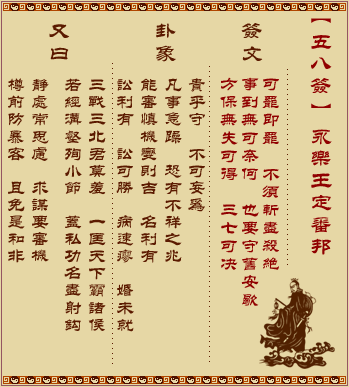 【五八簽】 永樂王定番邦
簽文
可罷即罷 不須斬盡殺絕
事到無可奈何 也要守舊安歇
方保無失可得 三七可決
卦象
貴乎守 不可妄為
凡事急躁 恐有不祥之兆
能審慎機變則吉 名利有
訟利有 訟可勝 病速瘳 婚未就
又曰
三戰三北君莫羞 一匡天下霸諸侯
若經溝壑殉小節 蓋私功名盡射鈎
靜處常思慮 求謀要審機
樽前防暴客 且免是和非